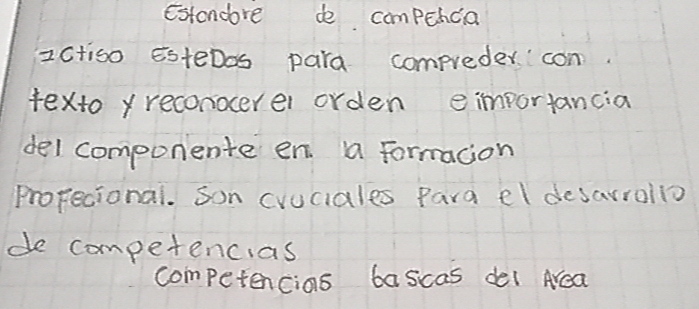 Estandore de competicia
actiso estedos para compreder con
texto y reconocer el orden e importancia
del componente en la Formacion
Profecional. Son cruciales Para el desarrollo
de competencias
competencias basicas del Area